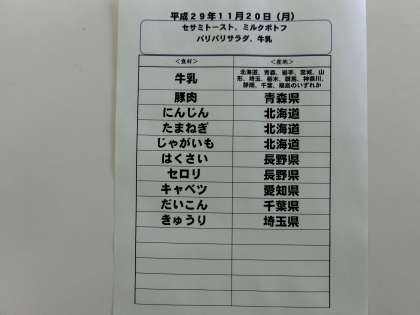 平成29年11月20日(月)
セサミトースト、ミルクポトフ
パリパリサラダ、牛乳
<食材> <産地>
牛乳 北海道、青森、岩手、宮城、山
形、埼玉、栃木、群馬、神奈川、
静岡、千葉、福島のいずれか
豚肉 青森県
にんじん 北海道
たまねぎ 北海道
じゃがいも 北海道
はくさい 長野県
セロリ 長野県
キャベツ 愛知県
だいこん 千葉県
きゅうり 埼玉県